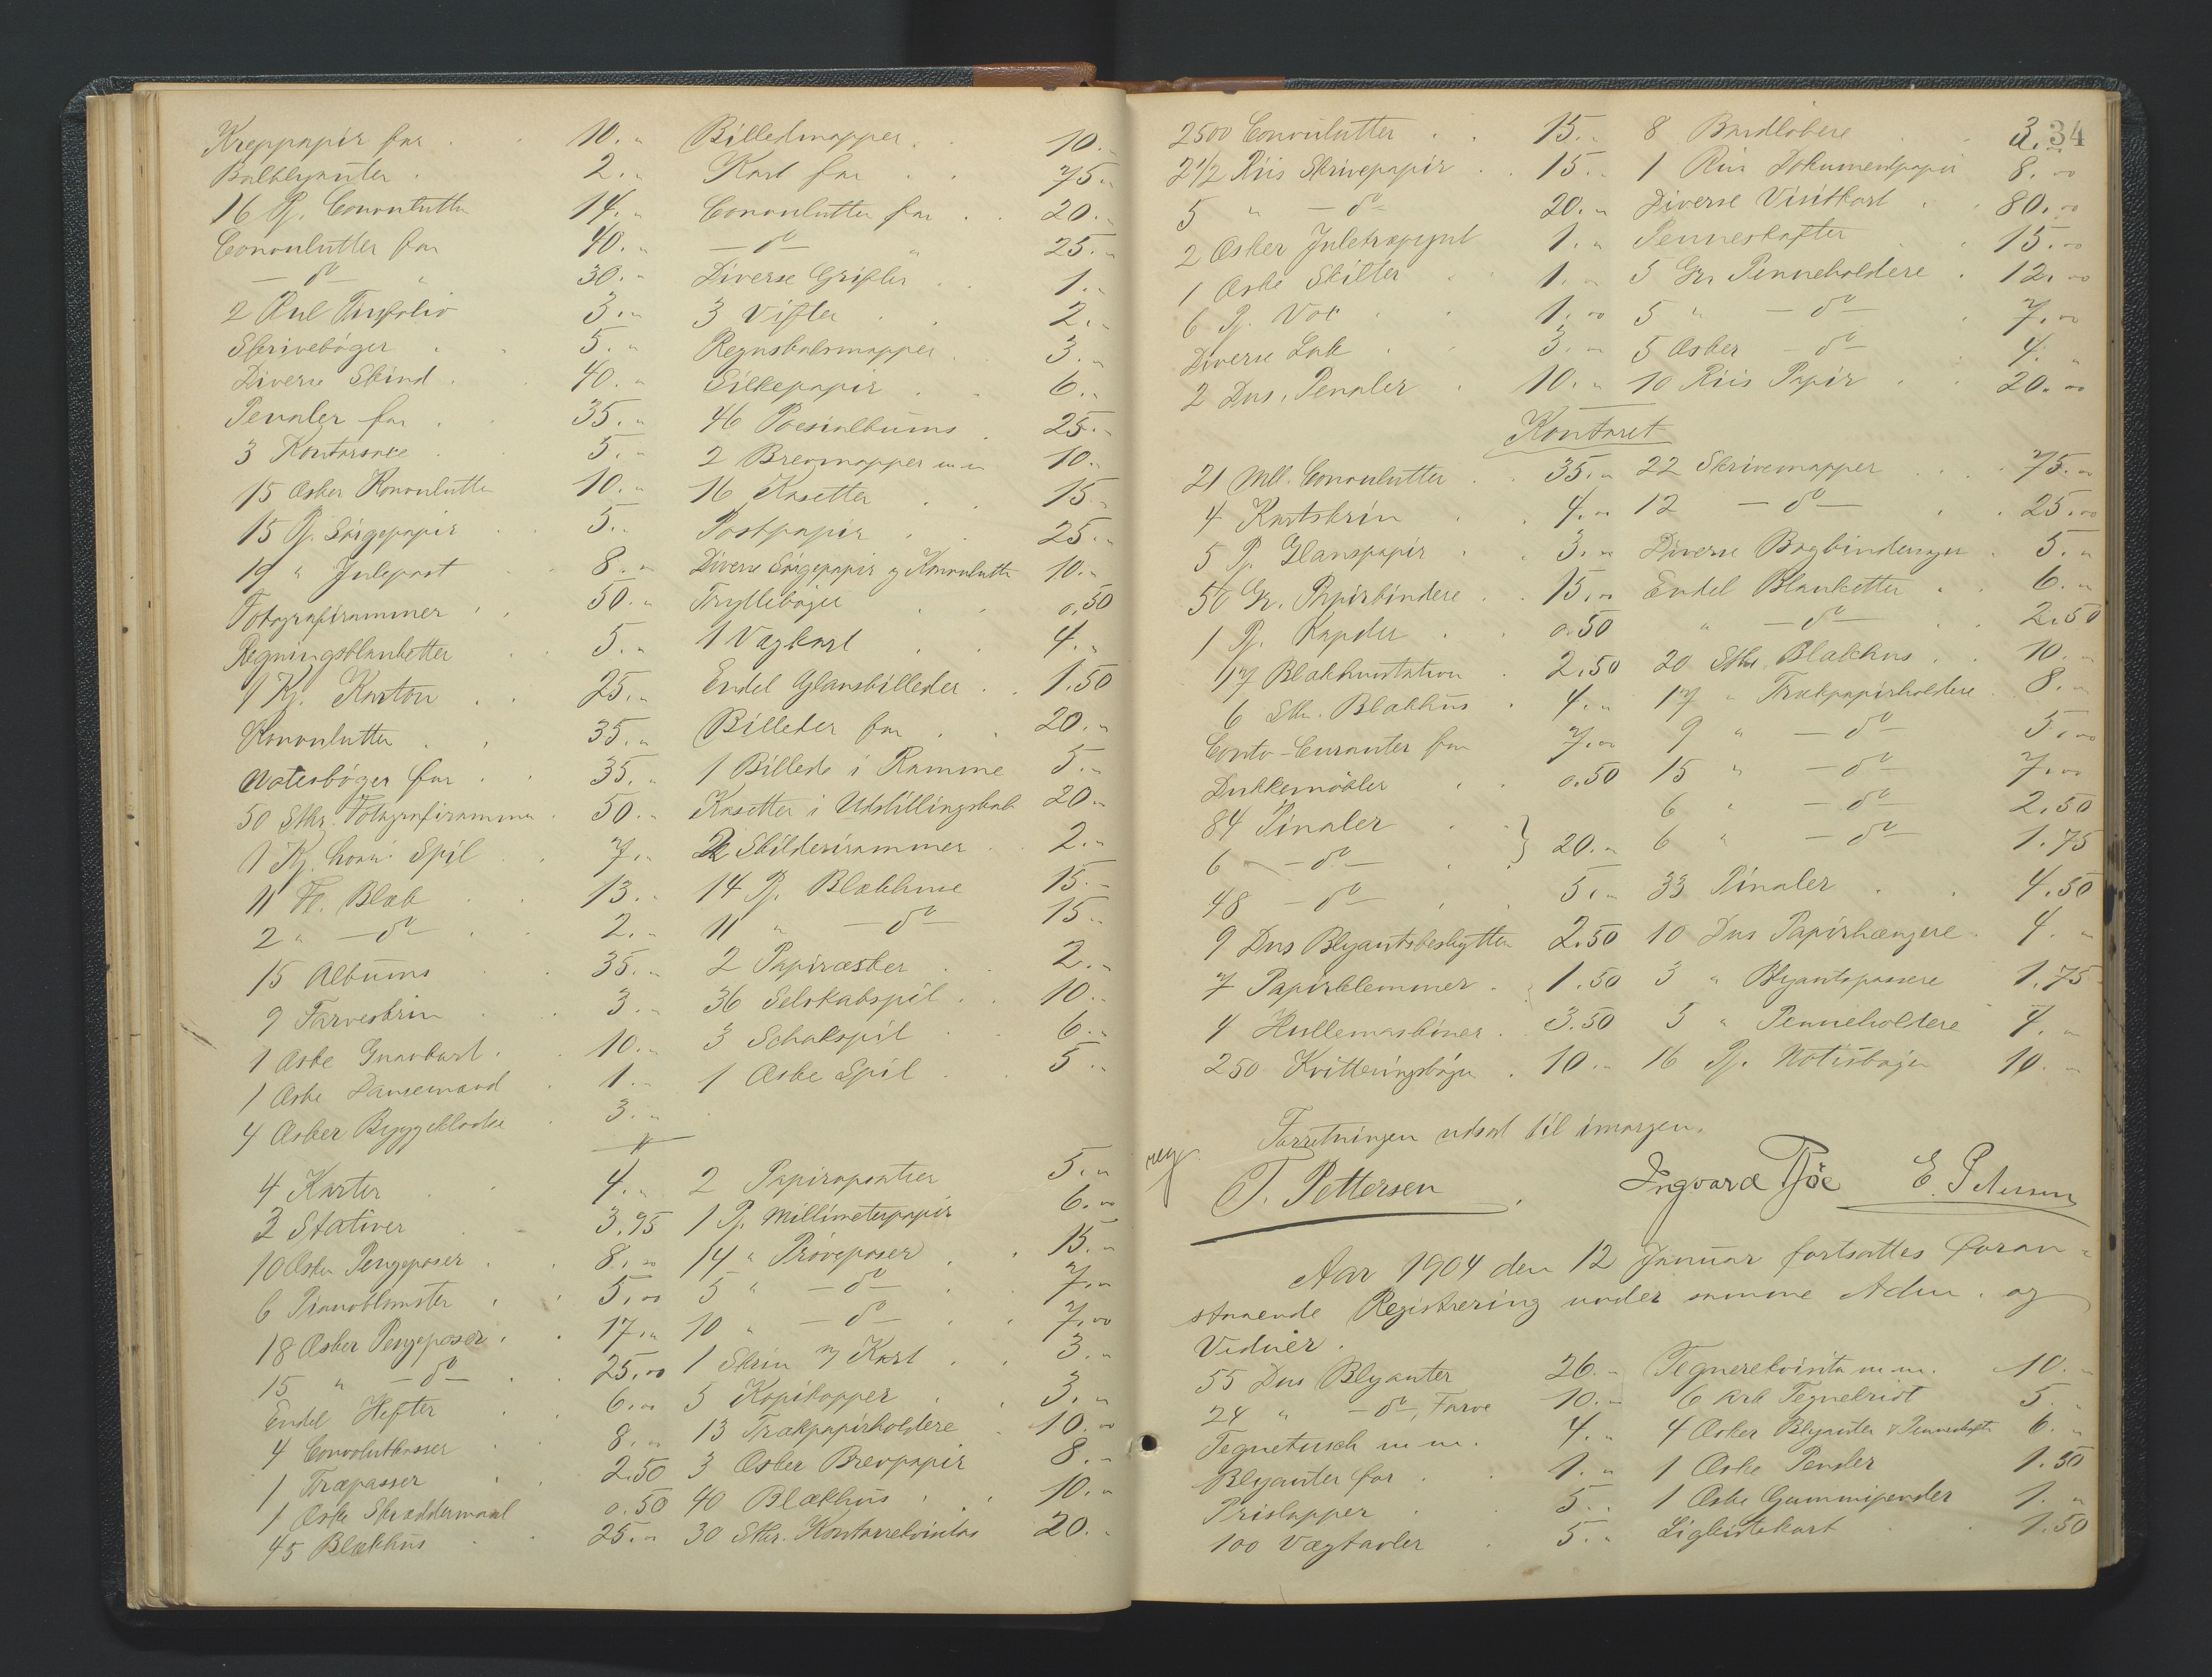 Kreppapir for . 10. „
Balblyanter . 2. „
16 Pj. Convolutter 14. „
Convolutter for 40. „
— do — „ 30. „
2 Rul Tinfolio 3. „
Skrivebøger . 5. „
Diverse Skind . 40. „
Penaler for . 35. „
3 Kontorsaxe . 5. „
15 Æsker Konvolutter 10. „
15 Pj. Sørgepapir . 5. „
19 „ Julepost . 8. „
Fotografirammer . 50. „
Regningsblanketter . 5. „
1 Kj. Karton . 25. „
Konvolutter . 35. „
Notesbøger for . 35. „
50 Stkr. Fotografirammer . 50. „
1 Kj. Spil . 7. „
11 Fl. Blæk . 13. „
2 „ — do — . 2. „
15 Albums . 35. „
9 Farveskrin . 3. „
1 Æske Gnavkort . 10. „
1 Æske Dansemand . 1. „
4 Æsker Byggeklodse . 3. „
4 Karter . 4. „
2 Stativer . 3.95
10 Æsker Pengeposer . 8. „
6 Pianoblomster . 5.00
18 Æsker Pengeposer . 17. „
15 „ — do — . 25.00
Endel Hefter . 6.00
4 Convolutkasser . 8. „
1 Træpasser . 2.50
1 Æske Skræddermaal 0.50
45 Blækhus . 25. „
Billedmapper . 10. „
Kort for . 75. „
Convolutter for . 20. „
— do — „ 25. „
Diverse Grifler . 1. „
3 Vifter . 2. „
Regnskabsmapper . 3. „
Silkepapir . 6. „
46 Poesialbums . 25. „
2 Brevmapper m m 10. „
16 Kasetter . 15. „
Postpapir . 25. „
Diverse Sørgepapir og Konvolutter 10. „
Tryllebøger . 0.50
1 Vægkart . 4. „
Endel Glansbilleder . 1.50
Billeder for . 20. „
1 Billede i Ramme 5. „
Kasetter i Udstillingskab 20. „
2 Skilderirammer . 2. „
14 Pj. Blækhuse 15. „
11 „ — do — 15. „
2 Papiræsker . 2. „
36 Selskabspil . 10. „
3 Schakspil . 6. „
1 Æske Spil . 5. „
2 Papiropsatser 5. „
1 Pj. Millimeterpapir 6. „
14 „ Prøveposer . 15. „
5 „ — do — . 7. „
10 „ — do — . 7.00
1 Skrin m/ Kort . 3. „
5 Kopikopper . 3. „
13 Trækpapirholdere 10.00
3 Æsker Brevpapir 8. „
40 Blækhus . 10. „
30 Stkr. Kontorrekvisitas 20. „
34
2500 Convolutter . 15. „
2 1/2 Riis Skrivepapir . 15. „
5 „ — do — 20. „
2 Æsker Juletræpynt 1. „
1 Æske Skilter . 1. „
6 Pj. Vox . 1.00
Diverse Lak . 3. „
2 Dus. Penaler . 10. „
8 Bordløbere . 3. „
1 Riis Dokumentpapir 8.00
Diverse Visitkort . 80.00
Penneskafter . 15.00
5 Gr. Penneholdere . 12.00
5 „ — do — . 7.00
5 Æsker — do — . 4. „
10 Riis Papir . 20.00
Kontoret
21 Mll. Convolutter . 35. „
4 Kortskrin . 4.00
5 Pj. Glanspapir . 3. „
50 Gr. Papirbindere . 15. „
1 Pj. Kapsler . 0.50
17 Blækhusstativer . 2.50
6 Stkr. Blækhus . 4. „
Conto-Curanter for 7.00
Dukkemøbler . 0.50
84 Pinaler . }
6 — do — . } 20. „
48 — do — . 5. „
9 Dus Blyantsbeskytter 2.50
7 Papirklemmer . 1.50
4 Hullemaskiner . 3.50
250 Kvitteringsbøger . 10. „
22 Skrivemapper . 75. „
12 — do — . 25.00
Diverse Bogbindersager . 5. „
Endel Blanketter . 6. „
„ — do — . 2.50
20 Stkr. Blækhus . 10. „
17 „ Trækpapirholdere . 8. „
9 „ — do — 5.00
15 „ — do — 7.00
6 „ — do — 2.50
6 „ — do — 1.75
33 Pinaler . 4.50
10 Dus Papirhængere . 4. „
3 „ Blyantspassere 1.75
5 „ Penneholdere 4. „
16 Pj. Notisbøger 10. „
Forretningen udsat til imorgen.
T. Pettersen . Ingvard Tjöe E. Petersen
Aar 1904 den 12 Januar fortsattes foran-
staaende Registrering under samme Adm. og
Vidner.
55 Dus Blyanter 26. „
24 „ — do —, Farve 10. „
Tegnetusch m m. 4. „
Blyanter for . 1. „
Prislapper . 5. „
100 Vægtavler . 5. „
Tegnerekvisita m m. 10. „
6 Ark Tegnekridt 5. „
4 Æsker Blyanter & Penneskafter 6. „
1 Æske Pensler 1.50
1 Æske Gummipensler 1. „
Ligkistekort . 1.50